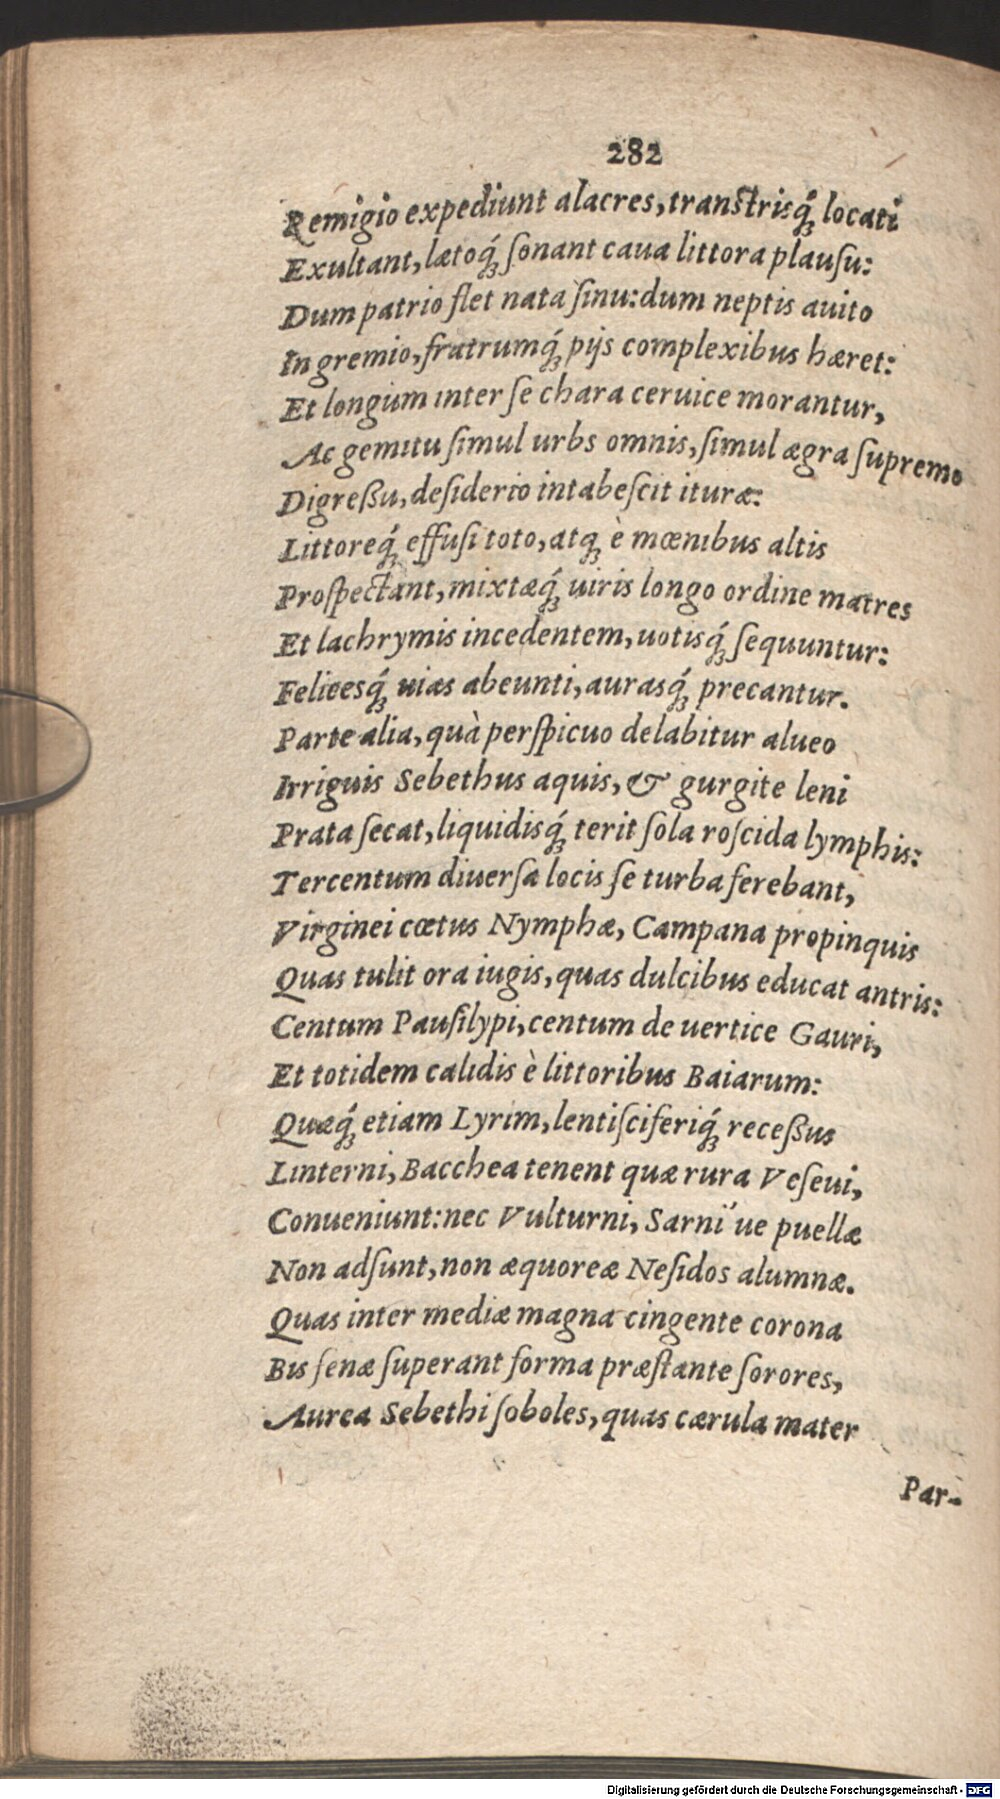 282
Remigio expediunt alacres, transtrisq́ꝫ locati
Exultant, lætoq́ꝫ ſonant caua littora plauſu:
Dum patrio flet nata ſinu: dum neptis auito
In gremio, fratrumq́ꝫ pijs complexibus hæret:
Et longùm inter ſe chara ceruice morantur,
Ac gemitu ſimul urbs omnis, ſimul ægra ſupremo
Digreßu, deſiderio intabeſcit ituræ:
Littoreq́ꝫ effuſi toto, atqꝫ è mœnibus altis
Proſpectant, mixtæq́ꝫ uiris longo ordine matres
Et lachrymis incedentem, uotisq́ꝫ ſequuntur:
Feliceesq́ꝫ uias abeunti, aurasq́ꝫ precantur.
Parte alia, quà perſpicuo delabitur alueo
Irriguis Sebethus aquis, & gurgite leni
Prata ſecat, liquidisq́ꝫ terit ſola roſcida lymphis:
Tercentum diuerſa locis ſe turba ferebant,
Virginei cœtus Nymphæ, Campana propinquis
Quas tulit ora iugis, quas dulcibus educat antris:
Centum Pauſilypi, centum de uertice Gauri,
Et totidem calidis è littoribus Baiarum:
Quæq́ꝫ etiam Lyrim, lentiſciferiq́ꝫ receßus
Linterni, Bacchea tenent quæ rura Veſeui,
Conueniunt: nec Vulturni, Sarni'ue puellæ
Non adſunt, non æquoreæ Neſidos alumnæ.
Quas inter mediæ magna cingente corona
Bis ſenæ ſuperant forma præſtante ſorores,
Aurea Sebethi ſoboles, quas cærula mater
Par-
Digitalisierung gefördert durch die Deutsche Forschungsgemeinschaft - DFG